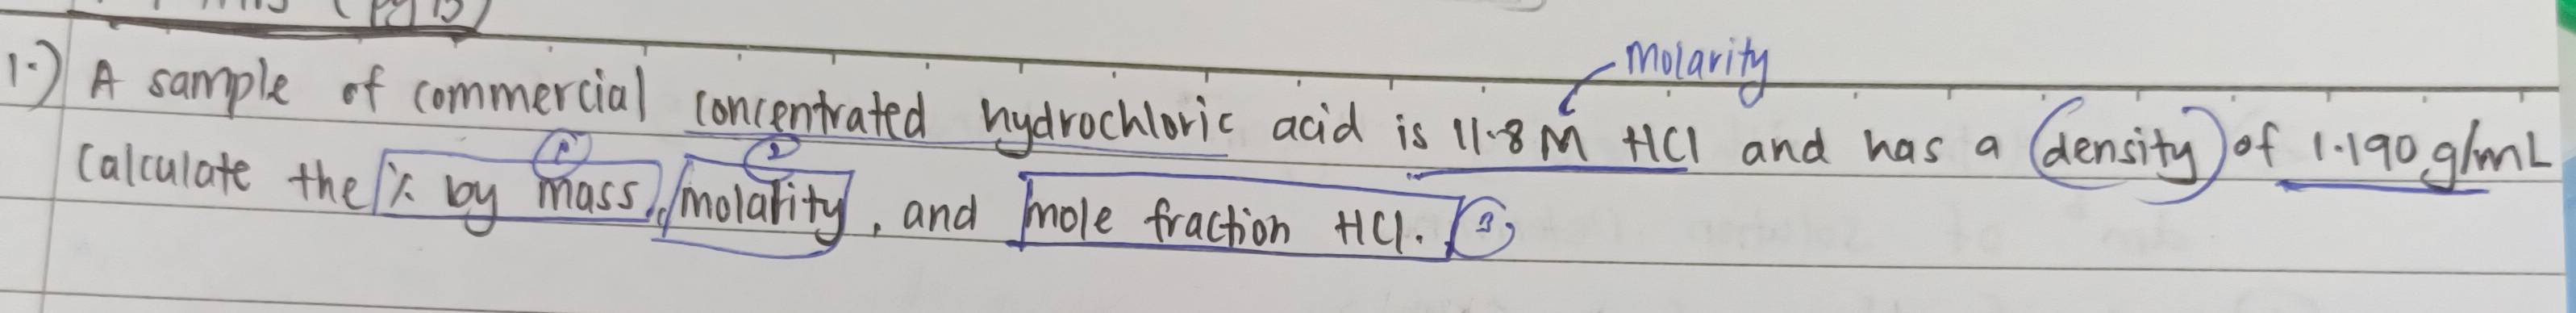 Molarity
1.) A sample of commercial concentrated hydrochloric acid is 11.8 M HCl and has a density of 1.190 g/mL
① ②
Calculate the % by mass, molarity, and mole fraction HCl. ③